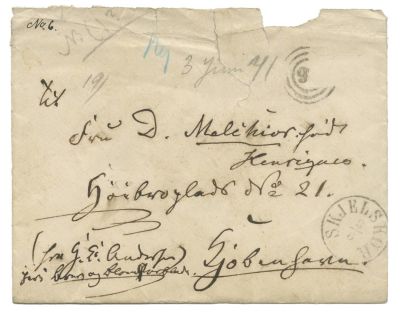 No 6.
3 Juni 71
9
19/
Til
Fru D. Melchior. født
Henriques.
Höibroplads No 21.
SKJELSKØR
(fra H. C. Andersen)
Kjöbenhavn.